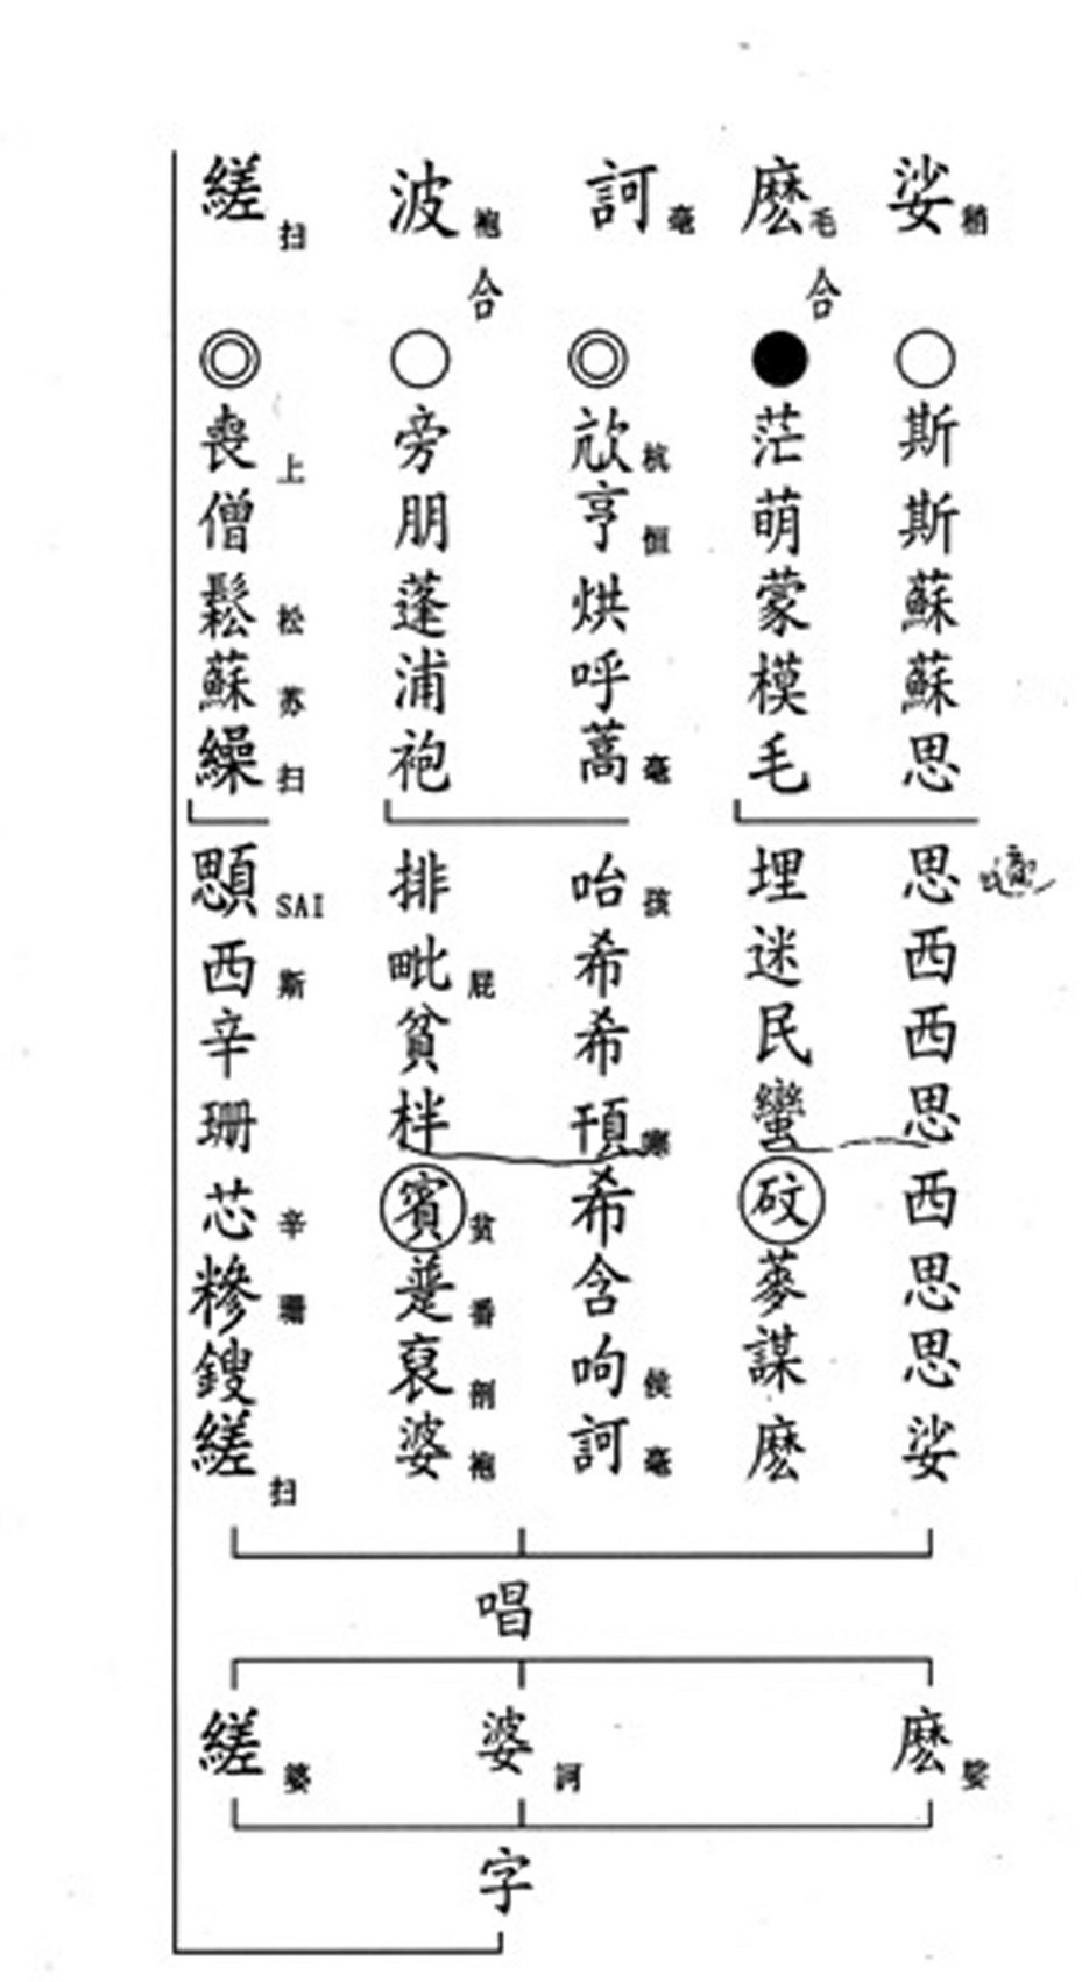 娑斯斯蘇蘇思思西西思西思思娑
稍
麽茫萌蒙模毛埋迷民蠻砇蔘謀麽
毛合
訶㰠亨烘呼蒿咍希希頇希含呴訶
毫杭恒毫孩寒侯毫
波旁朋蓬浦袍排毗貧柈賓踅裒婆
袍合屁贫番剖袍
縒喪僧鬆蘇繰顋西辛珊芯糝鎪縒
扫上松苏扫SAI斯辛珊扫
唱
麽娑
婆訶
縒婆
字